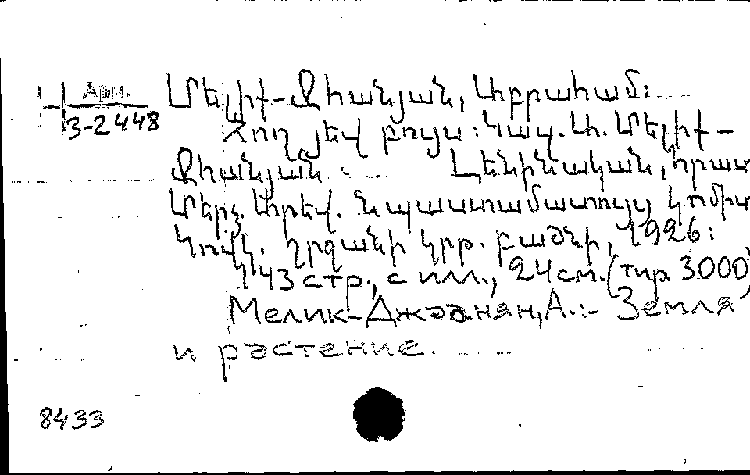 Арм. Մելիք-Ջհանյան, Աբրահամ:
3-2448 Հող յեվ բույս: Կազ. Ա. Մելիք-
Ջհանյան. Լենինական, հրատ
Մերձ. Արեվ. Նպաստամատույց կոմիտ
Կովկ. շրջանի կրթ. բաժնի, 1926:
43 стр., с илл., 24 см. (тир. 3000)
Мелик-Джаанян, А.:- Земля
и растение.
8433